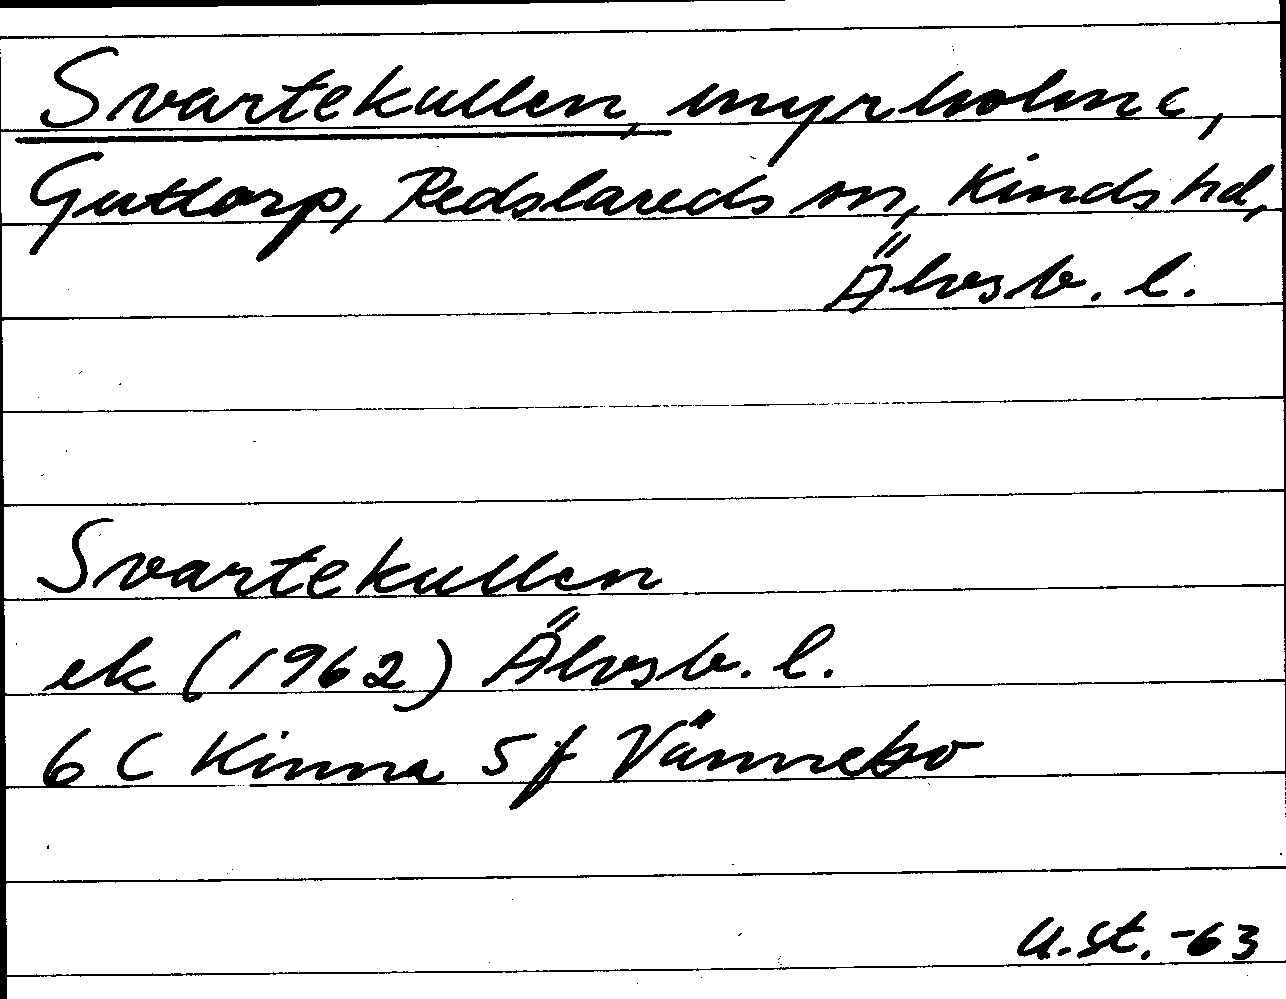 Svartekullen, myrholme,
Guttorp, Redslareds sn, Kinds hd,
Älvsb. l.
Svartekullen
ek (1962) Älvsb. l.
6 C Kinna 5 f Vännebo
U.St.-63